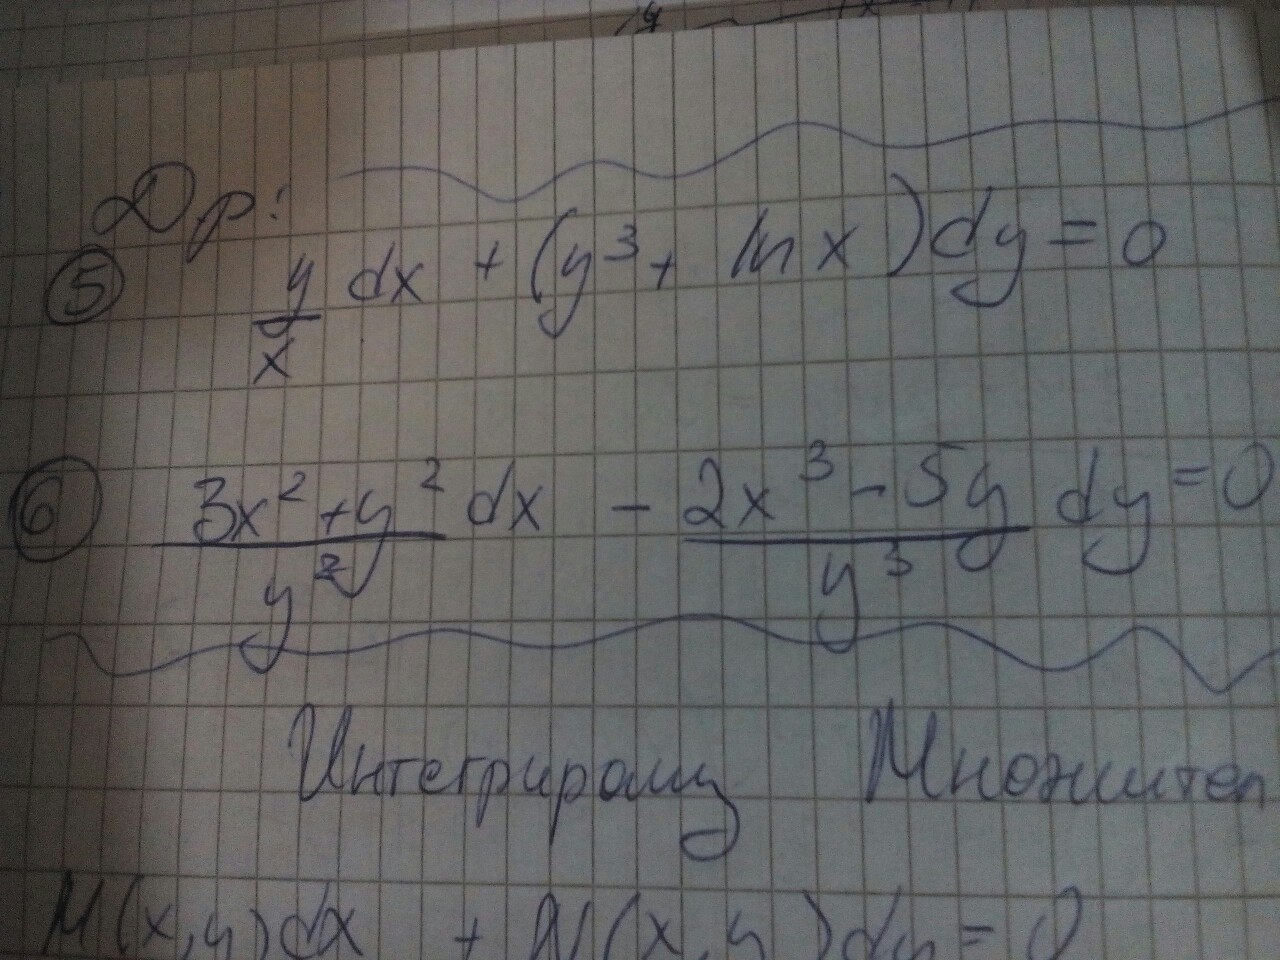 Др:
⑤ y/x dx + (y³ + ln x) dy = 0
⑥ (3x² + y²)/y² dx - (2x³ - 5y)/y³ dy = 0
Интегрирающ Множител
M(x,y)dx + N(x,y)dy = 0